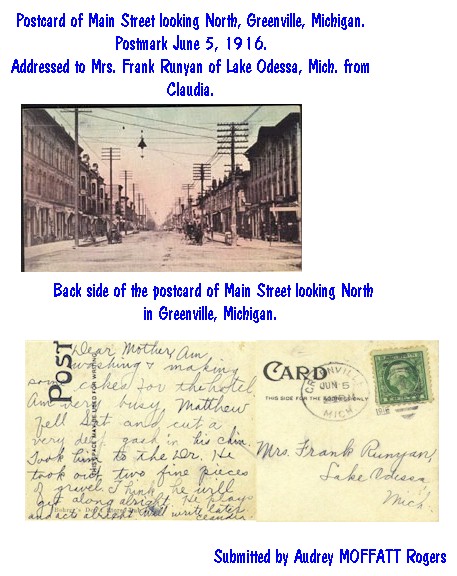 Postcard of Main Street looking North, Greenville, Michigan.
Postmark June 5, 1916.
Addressed to Mrs. Frank Runyan of Lake Odessa, Mich. from
Claudia.
Back side of the postcard of Main Street looking North
in Greenville, Michigan.
POST
THIS SPACE MAY BE USED FOR WRITING
Dear Mother Am
washing & making
some cakes for the hotel
Am very busy. Matthew
fell Sat and cut a
very deep gash in his chin.
Took him to the Dr. He
took out two fine pieces
of gravel. I think he will
get along alright. He plays
and acts alright. Will write later
CARD
THIS SIDE FOR THE ADDRESS ONLY
GREENVILLE
JUN 5
1916
MICH.
Mrs. Frank Runyan,
Lake Odessa,
Mich.
Submitted by Audrey MOFFATT Rogers